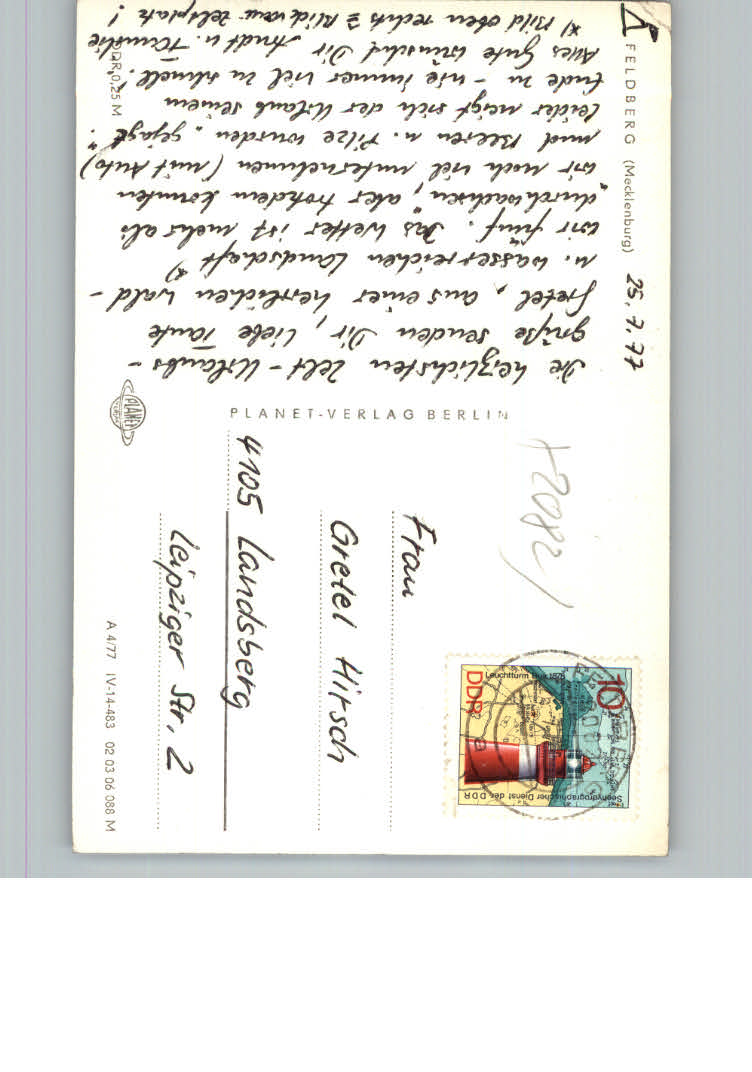 FELDBERG (Mecklenburg)
25.7.77
Die herzlichsten Zelt-Urlaubs-
grüße senden Dir, liebe Tante
Gretel, aus einer herrlichen wald-
u. wasserreichen Landschaft *)
wir fünf. Das Wetter ist mehr als
"durchwachsen", aber trotzdem konnten
wir noch viel unternehmen (mit Auto)
und Beeren u. Pilze wurden "gejagt".
Leider neigt sich der Urlaub seinem
Ende zu - wie immer viel zu schnell!
Alles Gute wünscht Dir Arndt u. Familie
*) Bild oben rechts ≙ Blick vom Zeltplatz!
DDR 0,25 M
PLANET-VERLAG BERLIN
PLANET
VERLAG
Frau
Gretel Hirsch
4105 Landsberg
Leipziger Str. 2
A 4/77 IV-14-483 02 03 06 088 M
10
Leuchtturm
DDR
Seehydrographischer Dienst der DDR